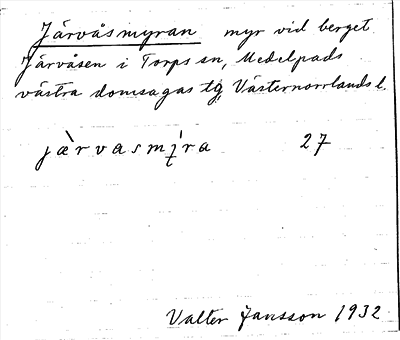 Järvåsmyran myr vid berget
Järvåsen i Torps sn, Medelpads
västra domsagas tg, Västernorrlands l.
jàrvasmyra 27
Valter Jansson 1932